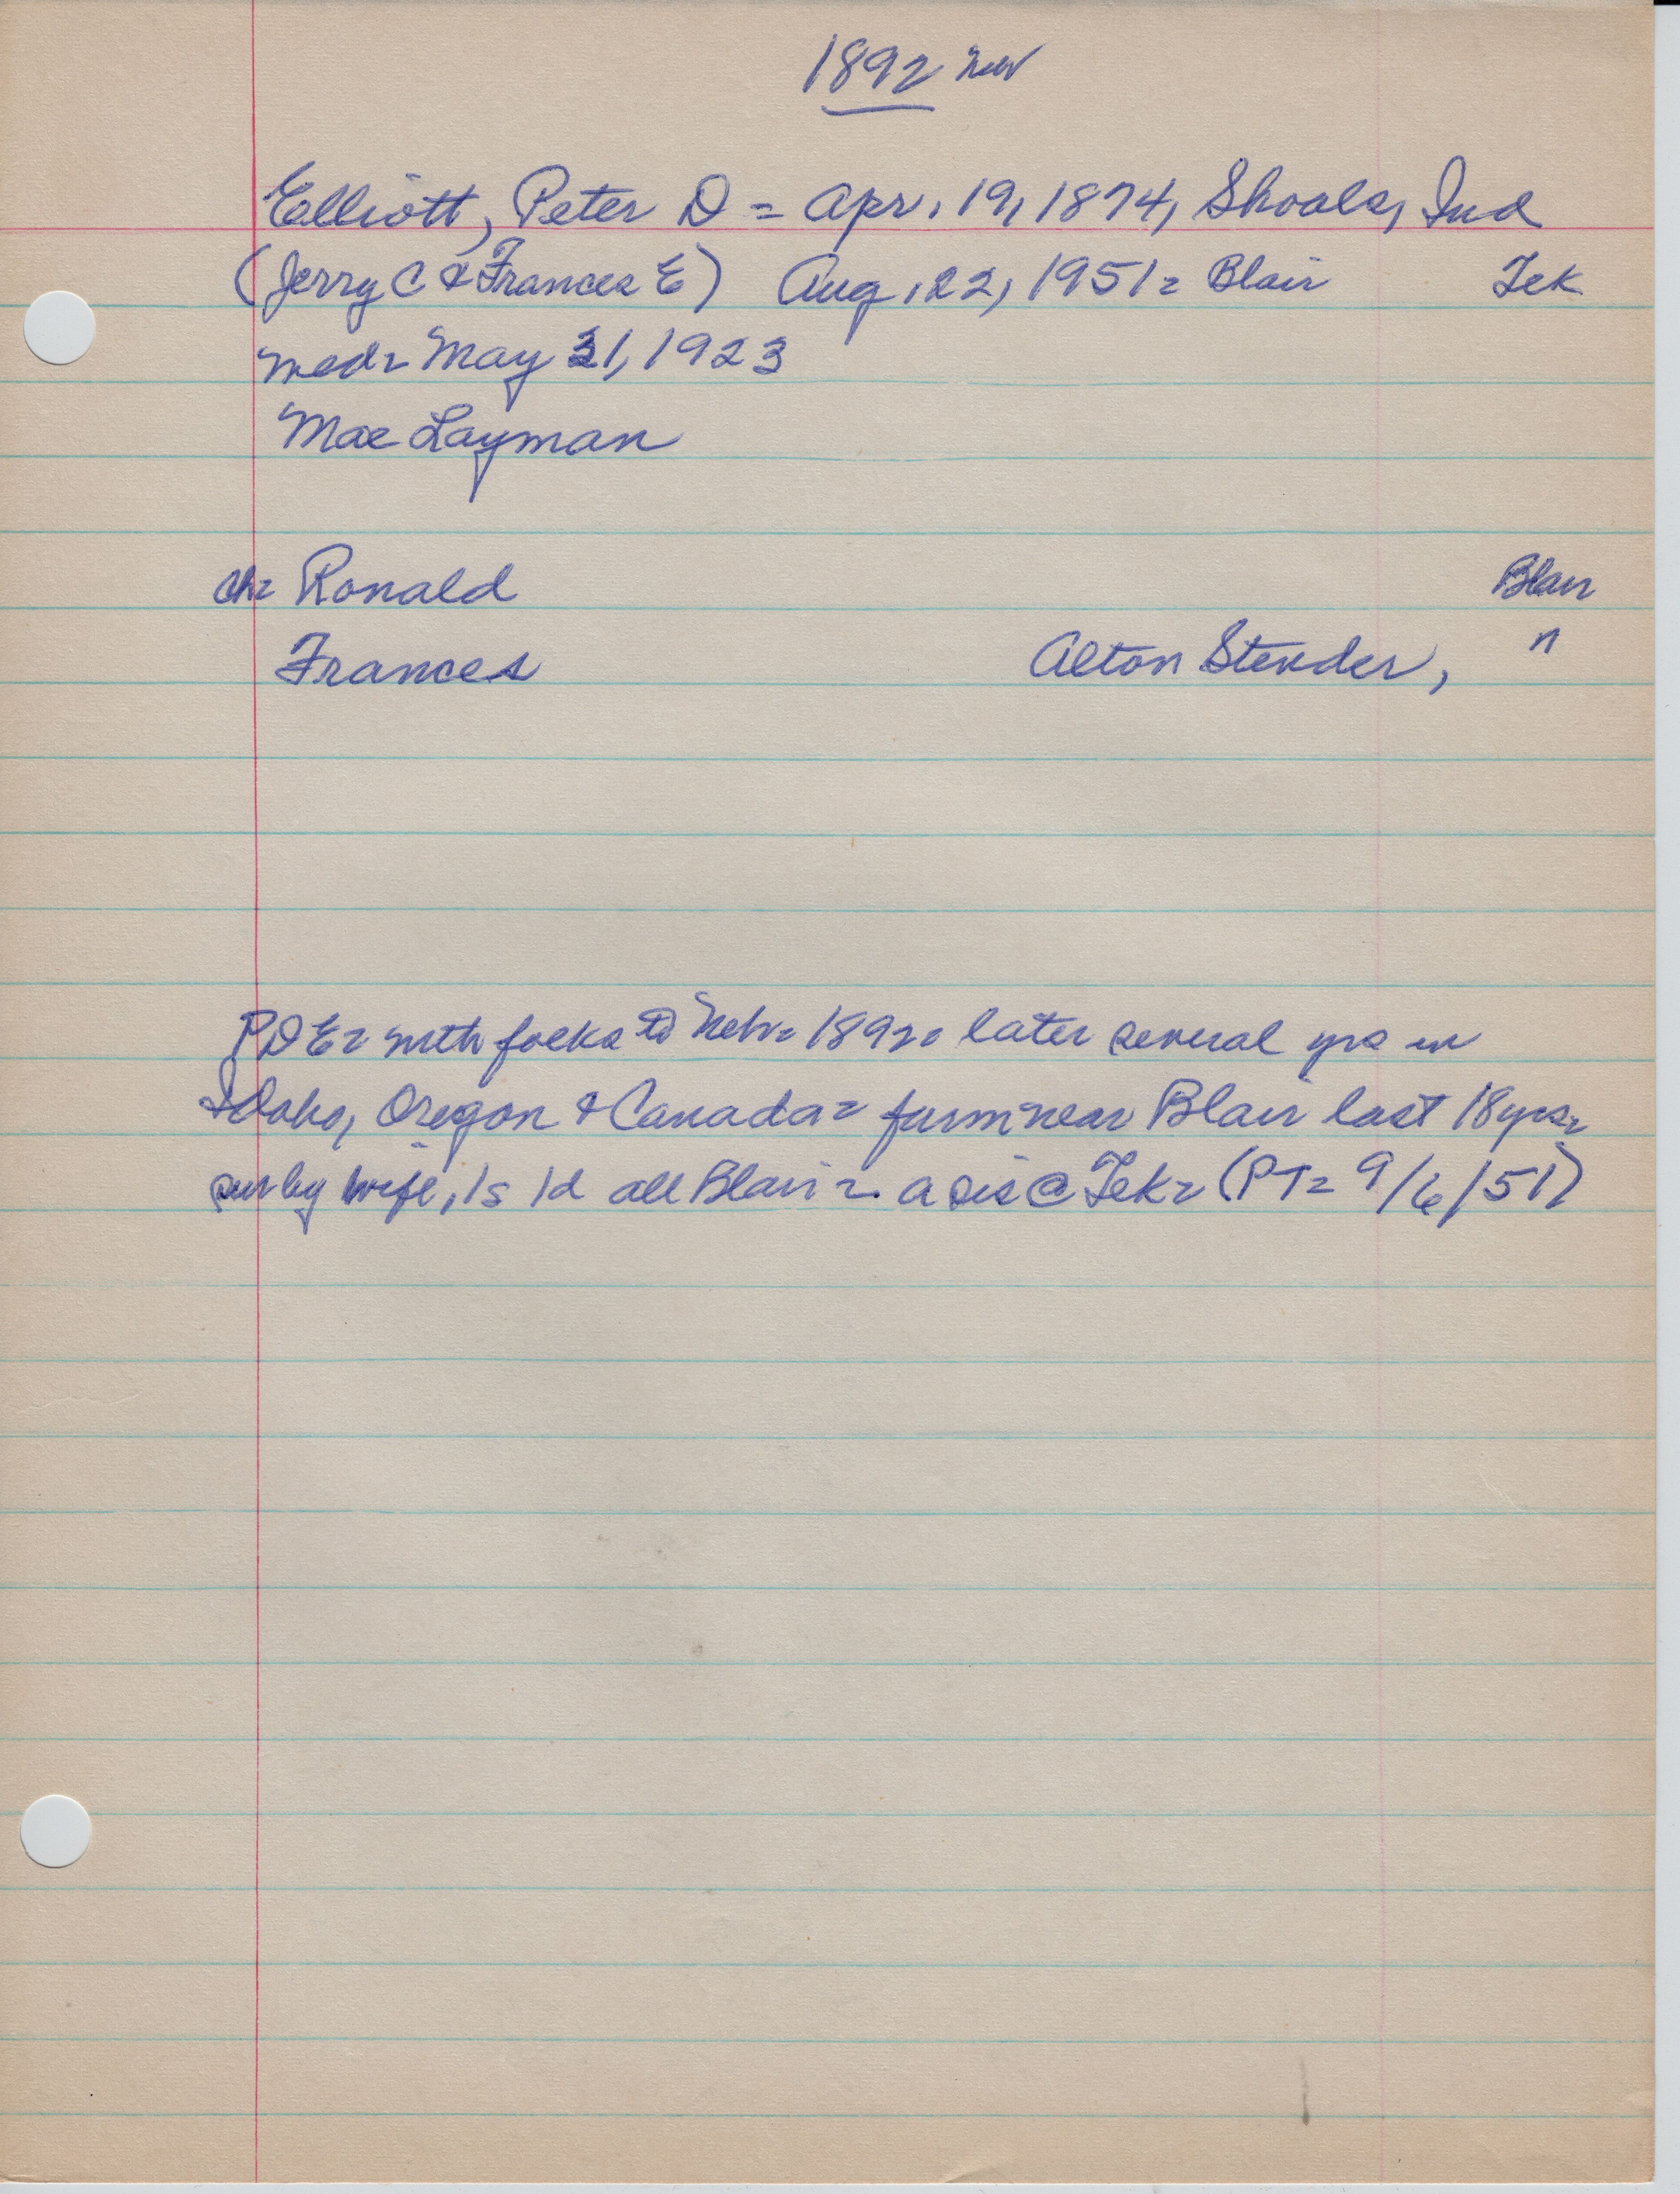 1892 Neb
Elliott, Peter D = Apr. 19, 1874, Shoals, Ind
(Jerry C & Frances E) Aug. 22, 1951 = Blair Tek
med = May 31, 1923
Mae Layman
ch = Ronald Blair
Frances Alton Stender, "
PDE = with folks to Neb = 1892 = later several yrs in
Idaho, Oregon & Canada = farm near Blair last 18 yrs =
sur by wife, 1s 1d all Blair = a sis @ Tek = (PT = 9/6/51)